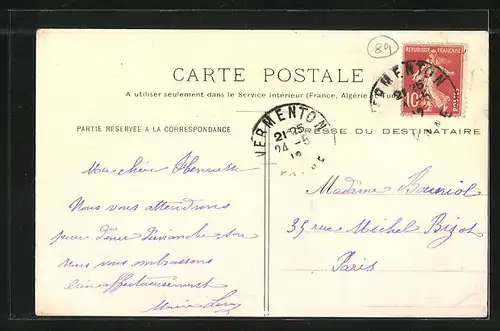 89
RÉPUBLIQUE FRANÇAISE
10
POSTES
VERMENTON
21 25
YONNE
CARTE POSTALE
A utiliser seulement dans le Service intérieur (France, Algérie
PARTIE RÉSERVÉE A LA CORRESPONDANCE
VERMENTON
21 25
24 -5
ADRESSE DU DESTINATAIRE
Ma chère Henriette
Nous vous attendrons
pour dîner Dimanche
Nous vous embrassons
bien affectueusement
Marie Leroy
Madame
35 rue Michel Bizot
Paris